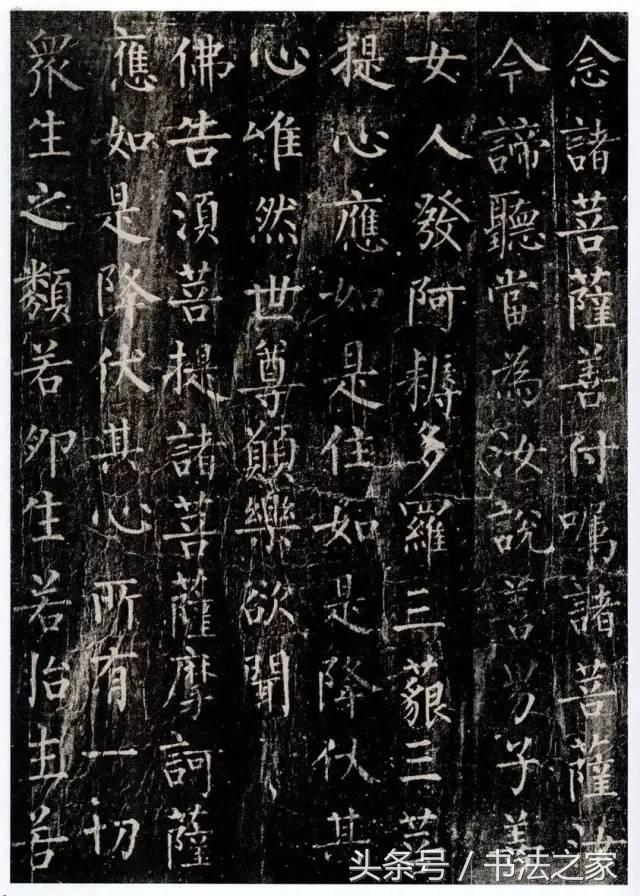 念諸菩薩善付囑諸菩薩汝
今諦聽當為汝說善男子善
女人發阿耨多羅三藐三菩
提心應如是住如是降伏其
心唯然世尊願樂欲聞
佛告須菩提諸菩薩摩訶薩
應如是降伏其心所有一切
眾生之類若卵生若胎生若
头条号 / 书法之家